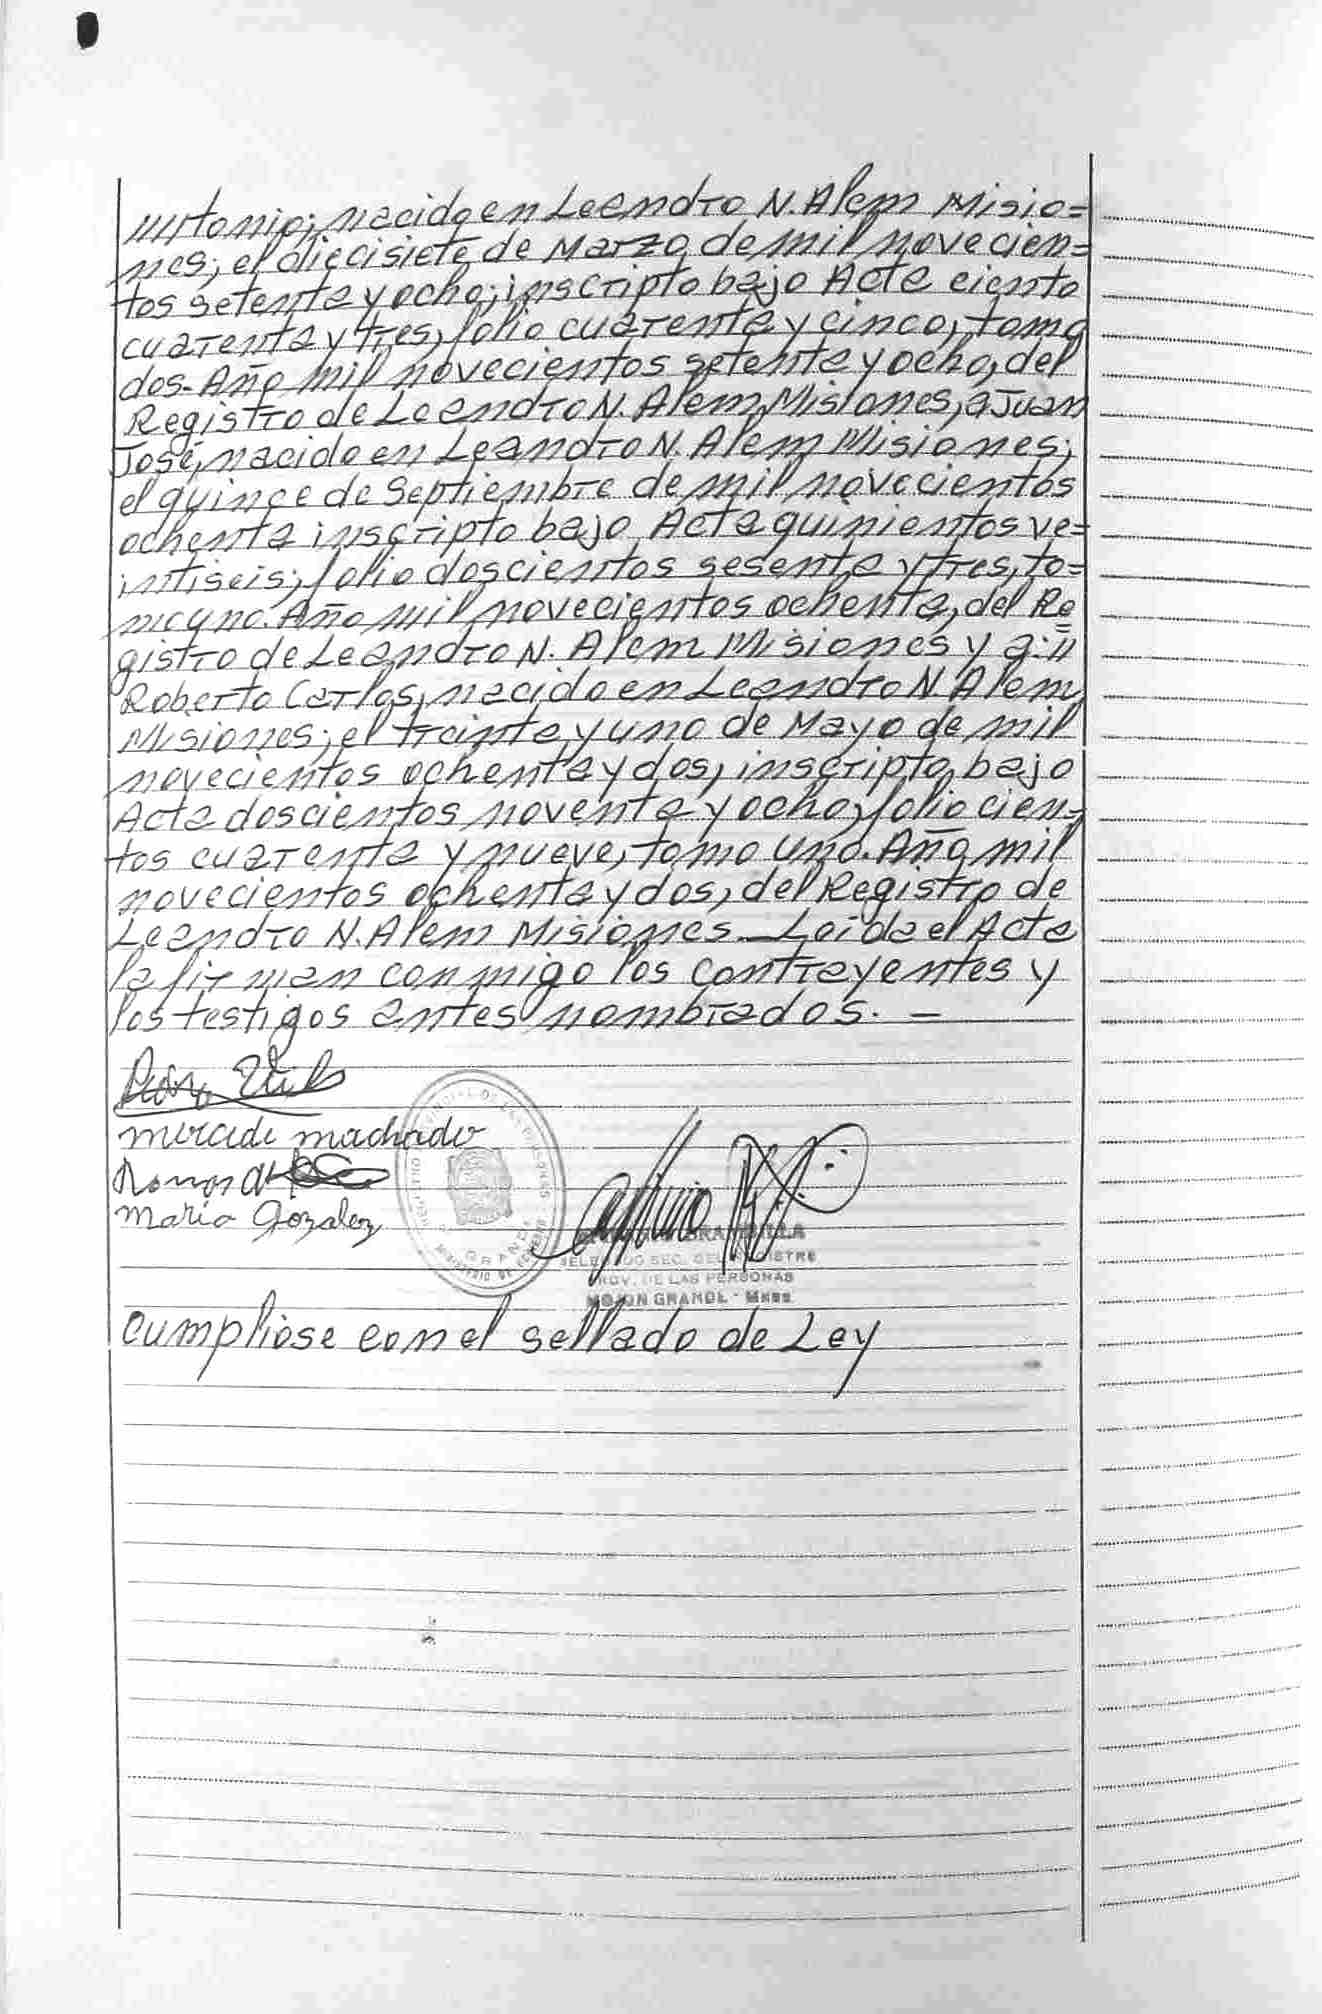 ////tonio; nacido en Leandro N. Alem Misio=
nes; el diecisiete de Marzo de mil novecien=
tos setenta y ocho; inscripto bajo Acta ciento
cuarenta y tres, folio cuarenta y cinco, tomo
dos. Año mil novecientos setenta y ocho, del
Registro de Leandro N. Alem Misiones, a Juan
José, nacido en Leandro N. Alem Misiones;
el quince de Septiembre de mil novecientos
ochenta inscripto bajo Acta quinientos ve=
intiseis; folio doscientos sesenta y tres, to=
mo uno. Año mil novecientos ochenta, del Re=
gistro de Leandro N. Alem Misiones y a: //
Roberto Carlos, nacido en Leandro N Alem
Misiones; el treinta y uno de Mayo de mil
novecientos ochenta y dos, inscripto bajo
Acta doscientos noventa y ocho, folio cien=
tos cuarenta y nueve, tomo uno. Año mil
novecientos ochenta y dos, del Registro de
Leandro N. Alem Misiones. — Leida el Acta
la firman conmigo los contrayentes y
los testigos antes nombrados. —
mercede machado
Ramon
maria Gozalez
SEC. DEL
PROV. DE LAS PERSONAS
MOJON GRANDE - Mnes.
Cumpliose con el sellado de Ley